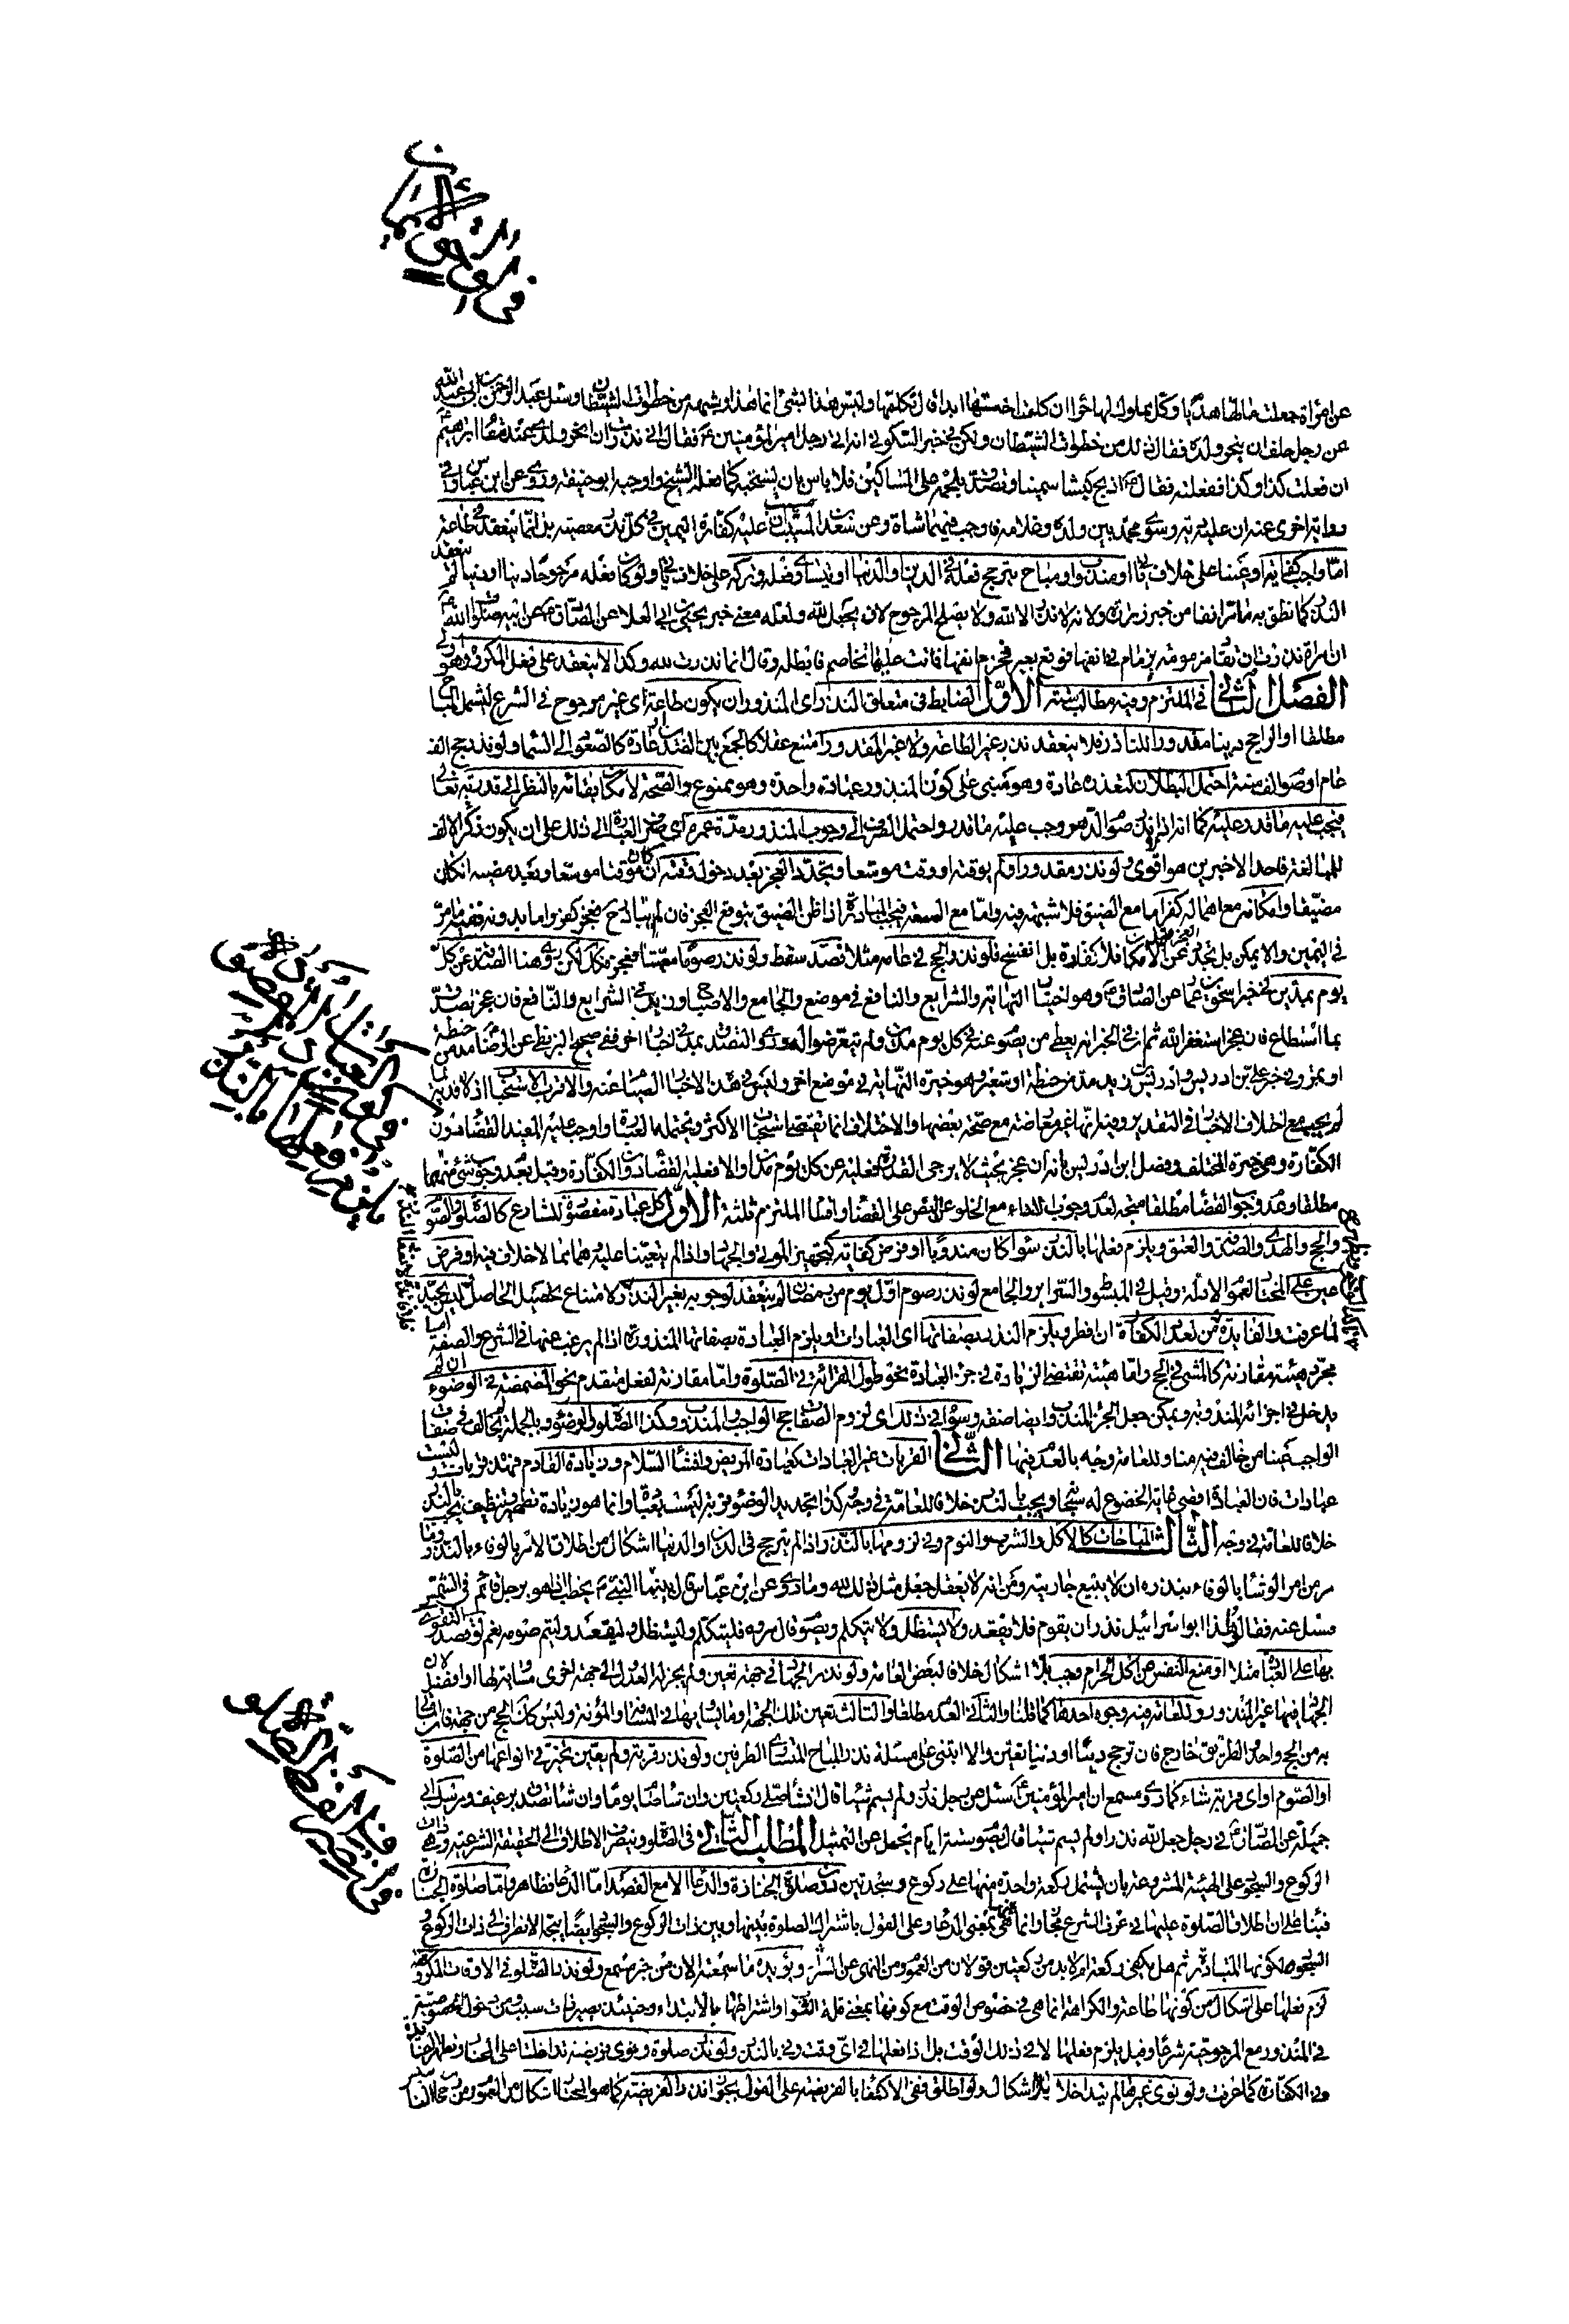 عن امرأة جعلت مالها هديا وكل مملوك لها حرا ان كلمت اختها ابدا قال تكلمها وليس هذا بشئ انما هذا وشبهه من خطوات الشيطان وسئل عبد الرحمن بن ابى عبد الله
عن رجل حلف ان ينحر ولده فقال ذلك من خطوات الشيطان ولكن فى خبر السكونى انه اتى رجل امير المؤمنين ع فقال انى نذرت ان انحر ولدى عند مقام ابراهيم
ان فعلت كذا وكذا ففعلته فقال ع اذبح كبشا سمينا وتصدق بلحمه على المساكين فلا باس بان يستحب كما فعله الشيخ واوجبه ابو حنيفة وروى عن ابن عباس وفى
رواية اخرى عنه ان عليه بدنة وسوى محمد بين ولده وغلامه فاوجب فيهما شاة وعن سعيد بن المسيب ان عليه كفارة اليمين فى كل نذر معصية بل انما ينعقد فى طاعة
اما واجب كفاية او عينا على خلاف ياتى او مندوب او مباح يترجح فعله فى الدين او الدنيا او يتساوى فعله وتركه على خلاف ياتى ولو كان فعله مرجوحا دينا او دنيا لم ينعقد
النذر كما نطق به ما مر انفا من خبر زرارة ولانه لا نذر الا لله ولا يصلح المرجوح لان يجعل لله ولعله معنى خبر يحيى بن ابى العلا عن الصادق ع عن ابيه صلوات الله
ان امرأة نذرت ان تقاد مزمومة بزمام فى انفها فوقع بعير فخرم انفها فاتت عليا تخاصم فابطله وقال انما نذرت لله وكذا لا ينعقد على فعل المكروه وهو
الفصل الثانى فى الملتزم وفيه مطالب ستة الاول الضابط فى متعلق النذر اى المنذور ان يكون طاعة اى غير مرجوح فى الشرع ليشمل المباح
مطلقا او الراجح دينا مقدورا للناذر فلا ينعقد نذر غير الطاعة ولا غير المقدور امتنع عقلا كالجمع بين الضدين او عادة كالصعود الى السماء ولو نذر حج الف
عام او صوم الف سنة احتمل البطلان لتعذره عادة وهو مبنى على كون المنذور عبادة واحدة وهو ممنوع والصحة لامكان بقائه بالنظر الى قدرته تعالى
فيجب عليه ما قدر عليه كما انه اذا نذر صوم الدهر وجب عليه ما قدر واحتمل الصرف الى وجوب المنذور مدة عمره اى صرف العبارة الى ذلك على ان يكون ذكر الالف
للمبالغة فاحد الاخيرين هو اقوى ولو نذر مقدورا ولم يوقته او وقت موسعا وتجدد العجز بعد دخول وقته ان كان موقتا موسعا وبعد مضيه ان كان
مضيقا وامكانه مع اهماله كفر اما مع الضيق فلا شبهة فيه واما مع السعة فيجب المبادرة اذا ظن الضيق بتوقع العجز فان لم يبادر ح فعجز كفر واما بدونه ففيه ما مر
فى اليمين والا يمكن بل تجدد العجز قبل الامكان فلا كفارة بل انفسخ فلو نذر الحج فى عامه مثلا فصد سقط ولو نذر صوما معينا فعجز فكذلك لكن روى هنا الصدقة عن كل
يوم بمدين فى خبر اسحق بن عمار عن الصادق ع وهو اختيار النهاية والشرايع والنافع فى موضع والجامع والاصباح او بمد فى الشرايع والنافع فان عجز تصدق
بما استطاع فان عجز استغفر الله ثم ان فى الخبر انه يعطى من يصوم عنه فى كل يوم مدين ولم يتعرضوا له وروى التصدق بمد فى اخبار اخر ففى صحيح البزنطى عن الرضا ع مد من حنطة
او تمر وفى خبر على بن ادريس وادريس بن زيد مد من حنطة او شعير وهو خيرة النهاية فى موضع اخر وليس فى هذه الاخبار الصيام عنه والاقرب الاستحباب اذ لا قدرة
لم يجب مع اختلاف الاخبار فى التقدير وفيه انها غير متعارضة مع صحة بعضها والاختلاف انما يقتضى استحباب الاكثر وتحتمله العبارة واوجب عليه المفيد القضاء دون
الكفارة وهو خيرة المختلف وفصل ابن ادريس بانه ان عجز بحيث لا يرجى القدرة فعليه عن كل يوم مدان والا فعليه القضاء دون الكفارة وقيل بعدم وجوب شئ منهما
مطلقا وعدم وجوب القضاء مطلقا متجه لعدم وجوب الاداء مع الخلو عن النص على القضاء واقسام الملتزم ثلثة الاول كل عبادة مقصودة للشارع كالصلوة والصوم
والحج والهدى والصدقة والعتق ويلزم فعلها بالنذر سواء كان مندوبا او فرض كفاية كتجهيز الموتى والجهاد اذا لم يتعينا عليه هما مما لا خلاف فيه او فرض
عين على المختار لعموم الادلة وقيل فى المبسوط والسرائر والجامع لو نذر صوم اول يوم من رمضان لم ينعقد لوجوبه بغير النذر ولامتناع تحصيل الحاصل
لما عرفت والفائدة تعدد الكفارة ان افطر ويلزم النذر بصفاتها اى العبادات او يلزم العبادة بصفاتها المنذورة اذا لم يرغب عنها فى الشرع والصفة اما
مجرد هيئة مقارنة كالمشى فى الحج واما هيئة تقتضى الزيادة فى جزء العبادة نحو طول القرائة فى الصلوة واما مقارنة لفعل متقدم نحو المضمضة فى الوضوء ان لم
يدخل فى اجزائه المندوبة ويمكن جعل الجزء المندوب ايضا صفة وسواء فى ذلك اى لزوم الصفات حج الواجب والمندوب وكذا الصلوة والوضوء وبالجملة يخالف فى صفات
الواجب عينا من خالف فيه منا وللعامة وجه بالعدم فيها الثانى القربات غير العبادات كعيادة المريض وافشاء السلام وزيارة القادم فهذه قربات وليست
عبادات فان العبادة اقصى غاية الخضوع له سبحانه ويجب بالنذر خلافا للعامة فى وجه وكذا تجديد الوضوء قربة ليست بعبادة وانما هو زيادة تطهير وتنظيف يجب بالنذر
خلافا للعامة فى وجه الثالث المباحات كالاكل والشرب والنوم وفى لزومها بالنذر اذا لم يترجح فى الدين او الدنيا اشكال من اطلاق الامر بالوفاء بالنذر وما
مر من امر الوشاء بالوفاء بنذره ان لا يبيع جاريته ومن انه لا يعقل جعل مثل ذلك لله وما روى عن ابن عباس قال بينما النبى ص يخطب اذا هو برجل قائم فى الشمس
فسئل عنه فقالوا هذا ابو اسرائيل نذر ان يقوم فلا يقعد ولا يستظل ولا يتكلم ويصوم قال مروه فليتكلم وليستظل وليقعد وليتم صومه نعم لو قصد التقوى
بها على العبادة مثلا او منع النفس من اكل الحرام وجب بلا اشكال خلافا لبعض العامة ولو نذر الجهاد فى جهة تعين ولم يجز له العدول الى جهة اخرى مساوية لها او افضل لان
الجهاد فيها غير المنذور وللعامة فيه وجوه احدها كما قلنا والثانى العدم مطلقا والثالث تعين تلك الجهة او ما يساويها فى المسافة والمؤنة وليس كذلك الحج من جهة
به من الحج واحد والطريق خارج فان ترجح دينا او دنيا تعين والا ابتنى على مسئلة نذر المباح المتساوى الطرفين ولو نذر قربة ولم يعين تخير فى انواعها من الصلوة
او الصوم او اى قربة شاء كما روى مسمع ان امير المؤمنين ع سئل عن رجل نذر ولم يسم شيئا قال ان شاء صلى ركعتين وان شاء صام يوما وان شاء تصدق برغيف ومرسل ابى
جميلة عن الصادق ع فى رجل جعل لله نذرا ولم يسم شيئا قال يصوم ستة ايام يحمل على التمثيل المطلب الثانى فى الصلوة وينصرف الاطلاق الى الحقيقة الشرعية وهى ذات
الركوع والسجود على الهيئة المشروعة بان يشتمل ركعة واحدة منها على ركوع وسجدتين دون صلوة الجنازة والدعاء الا مع القصد اما الدعاء فظاهر واما صلوة الجنازة
فبناء على ان اطلاق الصلوة عليها فى عرف الشرع مجاز وانما هى بمعنى الدعاء وعلى القول باشتراك الصلوة بينها وبين ذات الركوع والسجود ايضا يتجه الانصراف الى ذات الركوع و
السجود لكونها المتبادرة ثم هل يكفى ركعة ام لا بد من ركعتين قولان من العموم ومن النهى عن البتراء ويؤيده ما سمعته الان من خبر مسمع ولو نذر الصلوة فى الاوقات المكروهة
لزم فعلها على اشكال من كونها طاعة والكراهة انما هى فى خصوص الوقت مع كونها بمعنى قلة الثواب واشتراطها بالابتداء وحينئذ يصير ذات سبب ومن دخول الخصوصية
فى المنذور مع المرجوحية شرعا وقيل يلزم فعلها لا فى ذلك الوقت بل اذا فعلها فى اى وقت وفى بالنذر ولو نذر صلوة ونوى فريضة تداخلتا على المختار
وفى الكفارة كما عرفت ولو نوى غيرها لم يتداخلا بلا اشكال ولو اطلق ففى الاكتفاء بالفريضة على القول بجواز نذر الفريضة كما هو المختار اشكال من العموم ومن